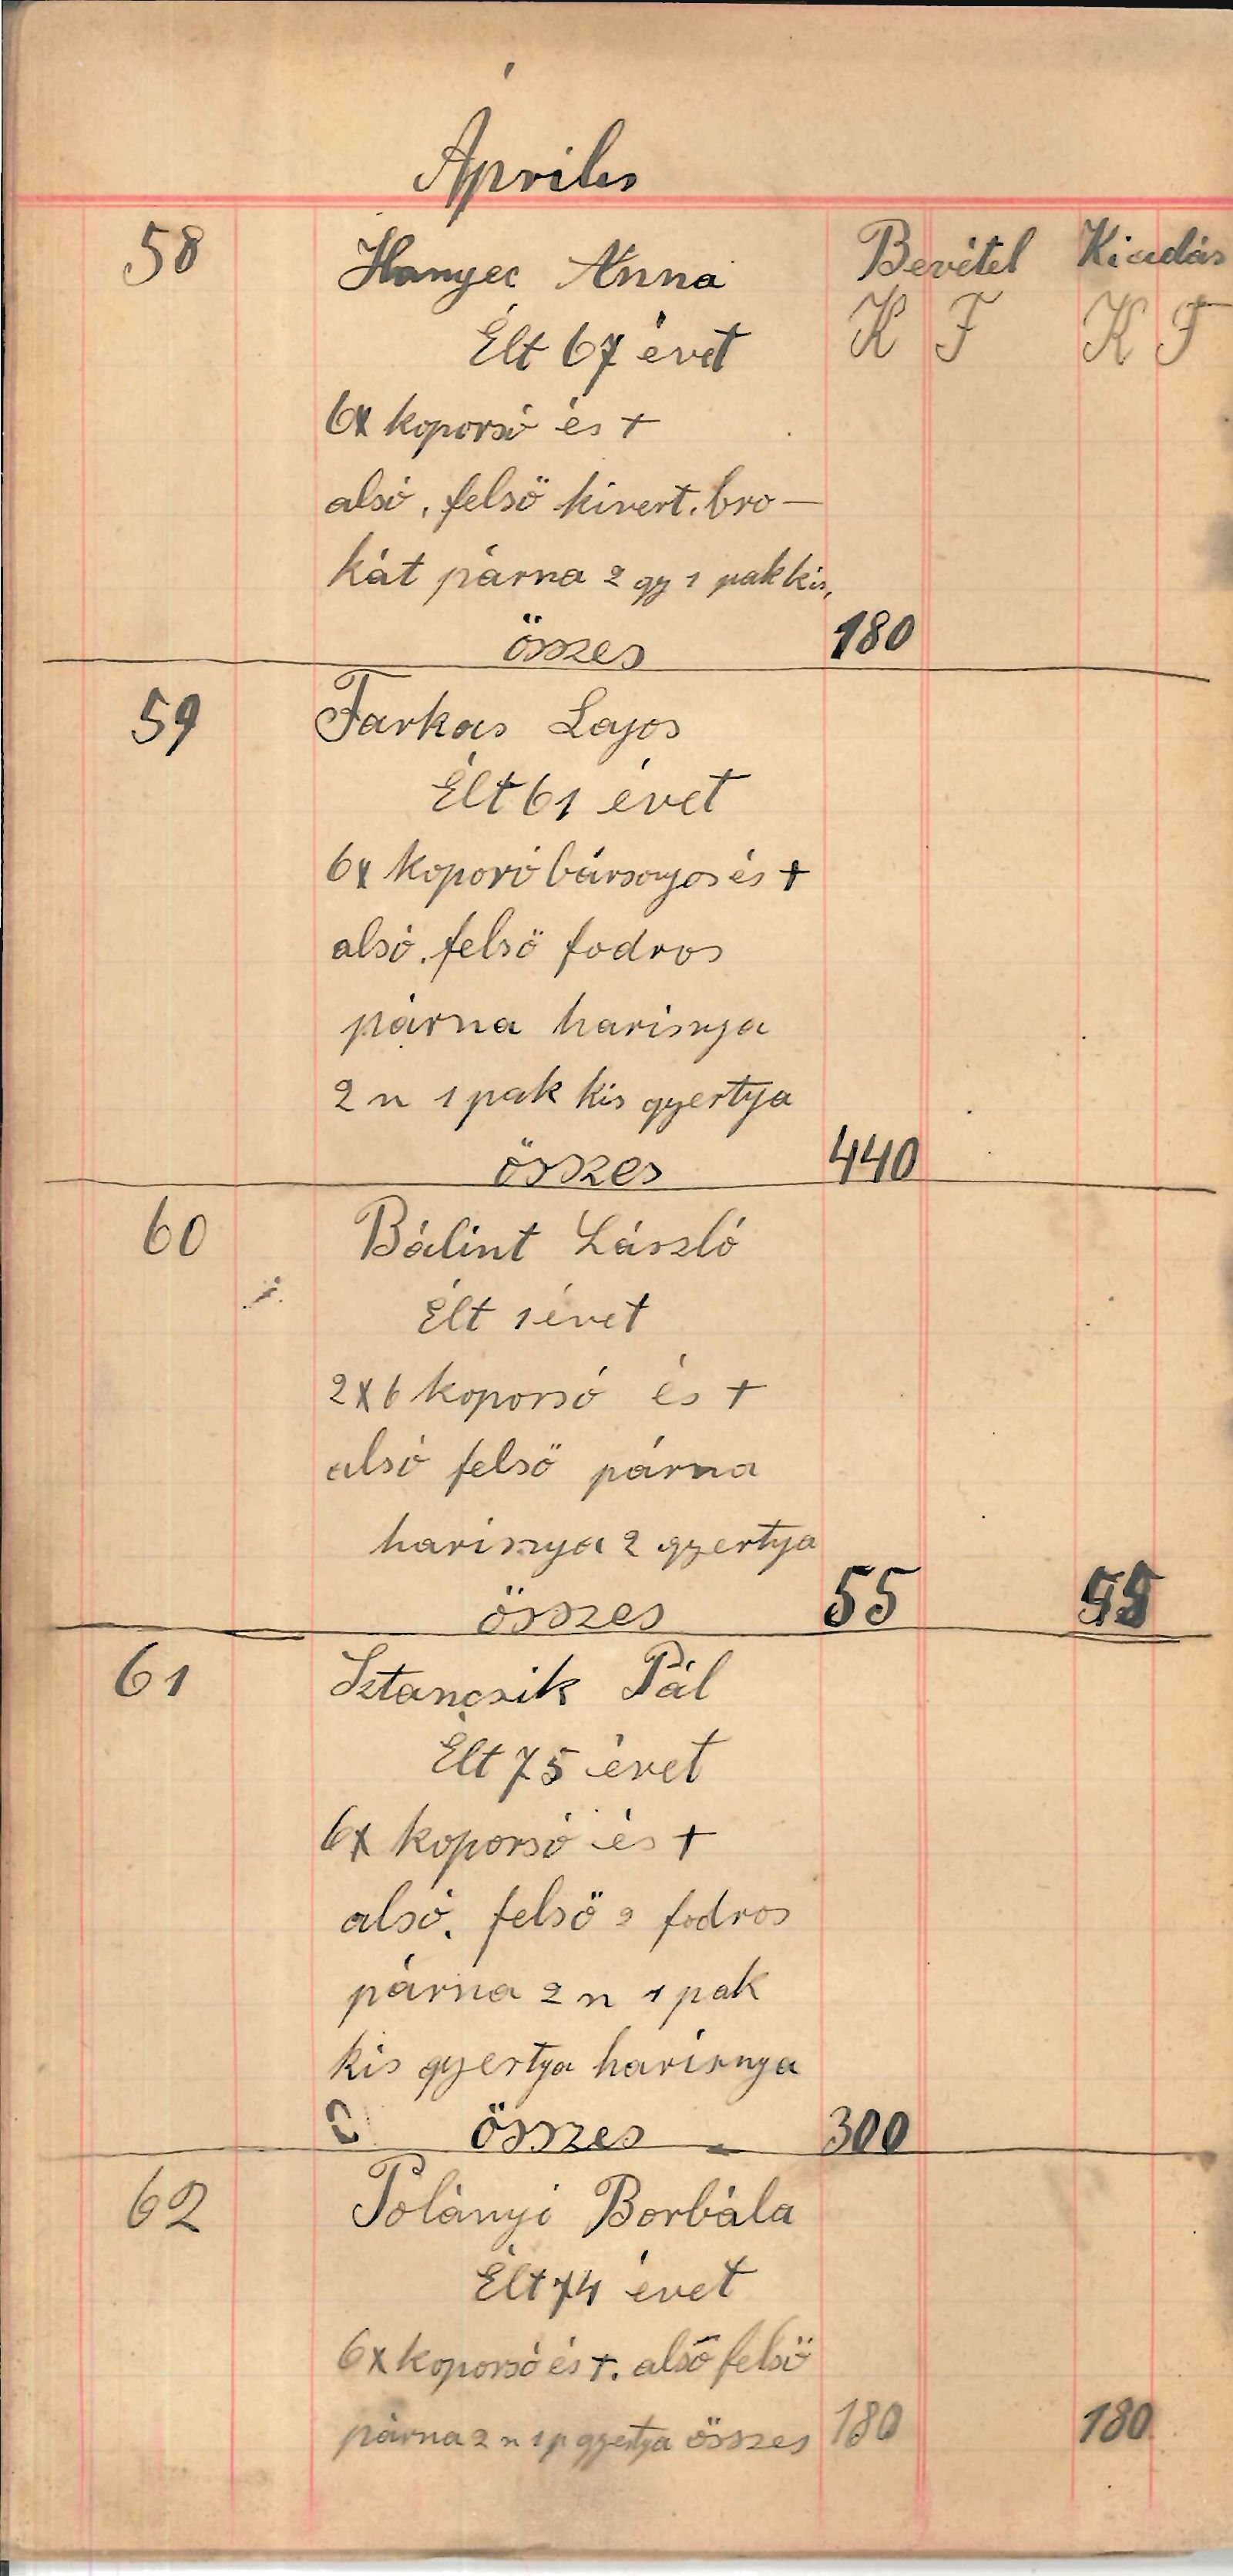 Április
58 Hanyec Anna Bevétel Kiadás
Élt 67 évet K F K F
6x koporsó és +
alsó, felső kivert. bro-
kát párna 2 gy 1 pak kis,
összes 180
59 Farkas Lajos
Élt 61 évet
6x koporó bársonyos és +
alsó. felső fodros
párna harisnya
2 n 1 pak kis gyertya
összes 440
60 Bálint László
Élt 1 évet
2x6 koporsó és +
alsó felső párna
harisnya 2 gyertya
összes 55 55
61 Sztancsik Pál
Élt 75 évet
6x koporsó és +
alsó. felső 2 fodros
párna 2 n 1 pak
kis gyertya harisnya
összes 300
62 Polányi Borbála
Élt 74 évet
6x koporsó és +. alsó felső
párna 2 n 1 p gyertya összes 180 180